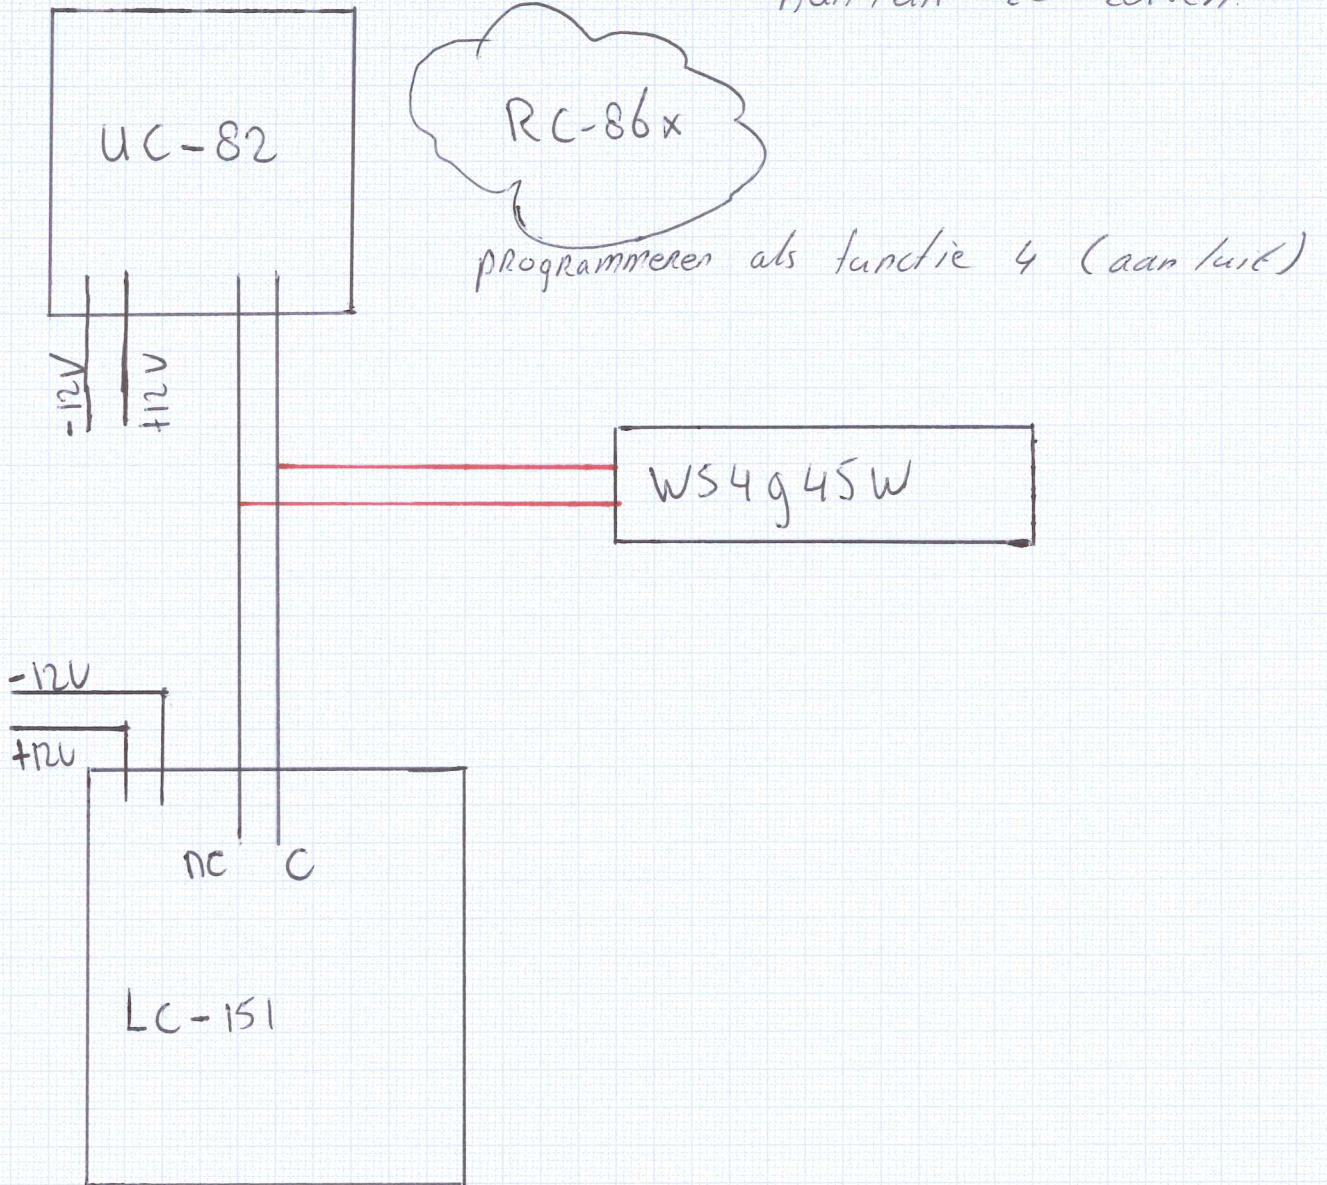 UC-82
RC-86x
programmeren als functie 4 (aan/uit)
-12V
+12V
WS4g45W
-12V
+12V
nc C
LC-151